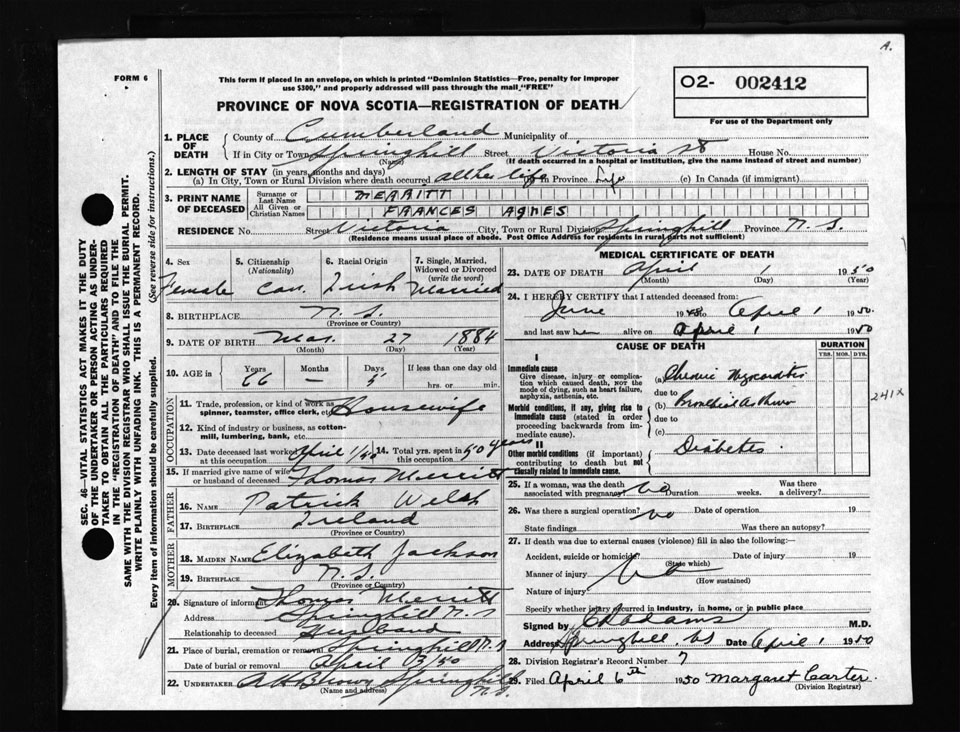 A.
FORM 6
This form if placed in an envelope, on which is printed "Dominion Statistics—Free, penalty for improper
use $300," and properly addressed will pass through the mail "FREE"
PROVINCE OF NOVA SCOTIA—REGISTRATION OF DEATH
O2- 002412
For use of the Department only
1. PLACE OF DEATH County of Cumberland Municipality of
If in City or Town Springhill Street Victoria St House No.
(Name) (If death occurred in a hospital or institution, give the name instead of street and number)
2. LENGTH OF STAY (in years, months and days)
(a) In City, Town or Rural Division where death occurred all her life (b) In Province Life (c) In Canada (if immigrant)
3. PRINT NAME OF DECEASED Surname or Last Name MERRITT
All Given or Christian Names FRANCES AGNES
RESIDENCE No. Street Victoria City, Town or Rural Division Springhill Province N.S.
(Residence means usual place of abode. Post Office Address for residents in rural parts not sufficient)
4. Sex 5. Citizenship (Nationality) 6. Racial Origin 7. Single, Married, Widowed or Divorced (write the word)
Female Can. Irish Married
8. BIRTHPLACE N.S.
(Province or Country)
9. DATE OF BIRTH Mar. 27 1884
(Month) (Day) (Year)
10. AGE in Years Months Days If less than one day
66 — 5 hrs. or min.
OCCUPATION
11. Trade, profession, or kind of work as spinner, teamster, office clerk, etc. Housewife
12. Kind of industry or business, as cotton-mill, lumbering, bank, etc.
13. Date deceased last worked at this occupation April 1/50 14. Total yrs. spent in this occupation 50 years
15. If married give name of wife or husband of deceased Thomas Merritt
FATHER
16. NAME Patrick Welsh
17. BIRTHPLACE Ireland
(Province or Country)
MOTHER
18. MAIDEN NAME Elizabeth Jackson
19. BIRTHPLACE N.S.
(Province or Country)
20. Signature of informant Thomas Merritt
Address Springhill N.S
Relationship to deceased Husband
21. Place of burial, cremation or removal Springhill N.S
Date of burial or removal April 3/50
22. UNDERTAKER A H Brown Springhill N.S.
(Name and address)
MEDICAL CERTIFICATE OF DEATH
23. DATE OF DEATH April 1 1950
(Month) (Day) (Year)
24. I HEREBY CERTIFY that I attended deceased from:
June 1948 to April 1 1950.
and last saw her alive on April 1 1950
CAUSE OF DEATH DURATION
YRS. MOS. DYS.
I
Immediate cause
Give disease, injury or complication which caused death, not the mode of dying, such as heart failure, asphyxia, asthenia, etc.
(a) Chronic Myocarditis
due to
Morbid conditions, if any, giving rise to immediate cause (stated in order proceeding backwards from immediate cause).
(b) Bronchial Asthma
due to
(c)
241X
II
Other morbid conditions (if important) contributing to death but not causally related to immediate cause.
Diabetes
25. If a woman, was the death associated with pregnancy? No Duration weeks. Was there a delivery?
26. Was there a surgical operation? No Date of operation 19
State findings Was there an autopsy?
27. If death was due to external causes (violence) fill in also the following:—
Accident, suicide or homicide? Date of injury 19
(State which)
Manner of injury No
(How sustained)
Nature of injury
Specify whether injury occurred in industry, in home, or in public place
Signed by M.D.
Address Springhill. NS Date April 1 1950
28. Division Registrar's Record Number 7
29. Filed April 6th 1950 Margaret Carter
(Division Registrar)
SEC. 46—VITAL STATISTICS ACT MAKES IT THE DUTY
OF THE UNDERTAKER OR PERSON ACTING AS UNDER-
TAKER TO OBTAIN ALL THE PARTICULARS REQUIRED
IN THE "REGISTRATION OF DEATH" AND TO FILE THE
SAME WITH THE DIVISION REGISTRAR WHO SHALL ISSUE THE BURIAL PERMIT.
WRITE PLAINLY WITH UNFADING INK. THIS IS A PERMANENT RECORD.
Every item of information should be carefully supplied. (See reverse side for instructions.)